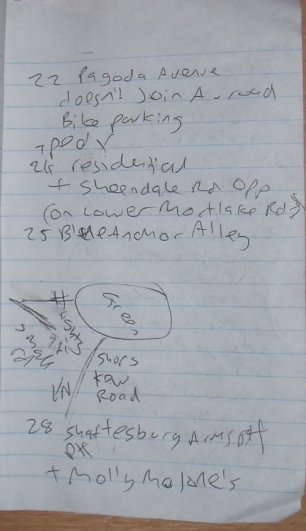 22 Pagoda Avenue
doesn't Join A road
Bike parking
+ped
24 residential
+ Sheendale Rd opp
(on Lower Mortlake Rd)
25 Blue Anchor Alley
Kew
Road
28 Shaftesbury Arms PH
PH
+ Molly Malone's